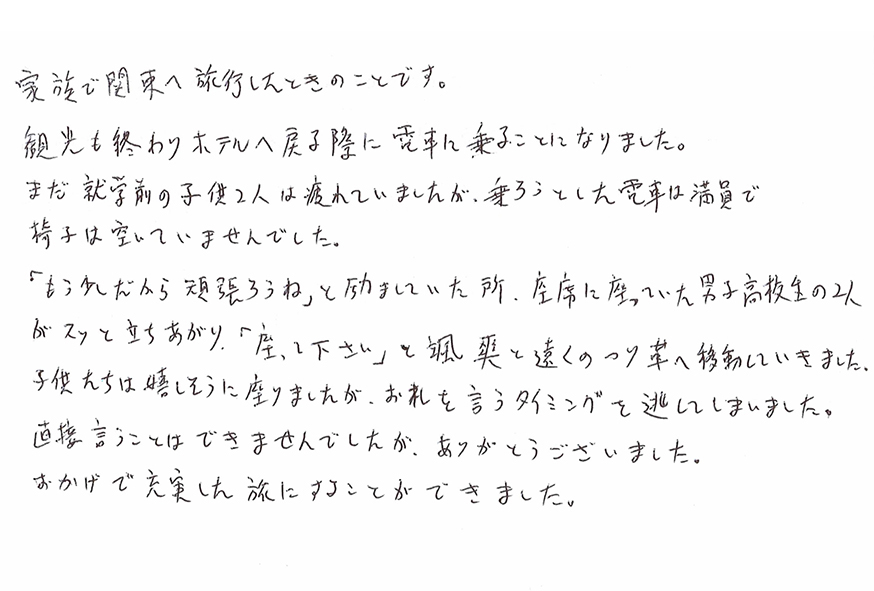 家族で関東へ旅行したときのことです。
観光も終わりホテルへ戻る際に電車に乗ることになりました。
まだ就学前の子供2人は疲れていましたが、乗ろうとした電車は満員で
椅子は空いていませんでした。
「もう少しだから頑張ろうね」と励ましていた所、座席に座っていた男子高校生の2人
がスッと立ちあがり、「座って下さい」と颯爽と遠くのつり革へ移動していきました。
子供たちは嬉しそうに座りましたが、お礼を言うタイミングを逃してしまいました。
直接言うことはできませんでしたが、ありがとうございました。
おかげで充実した旅にすることができました。